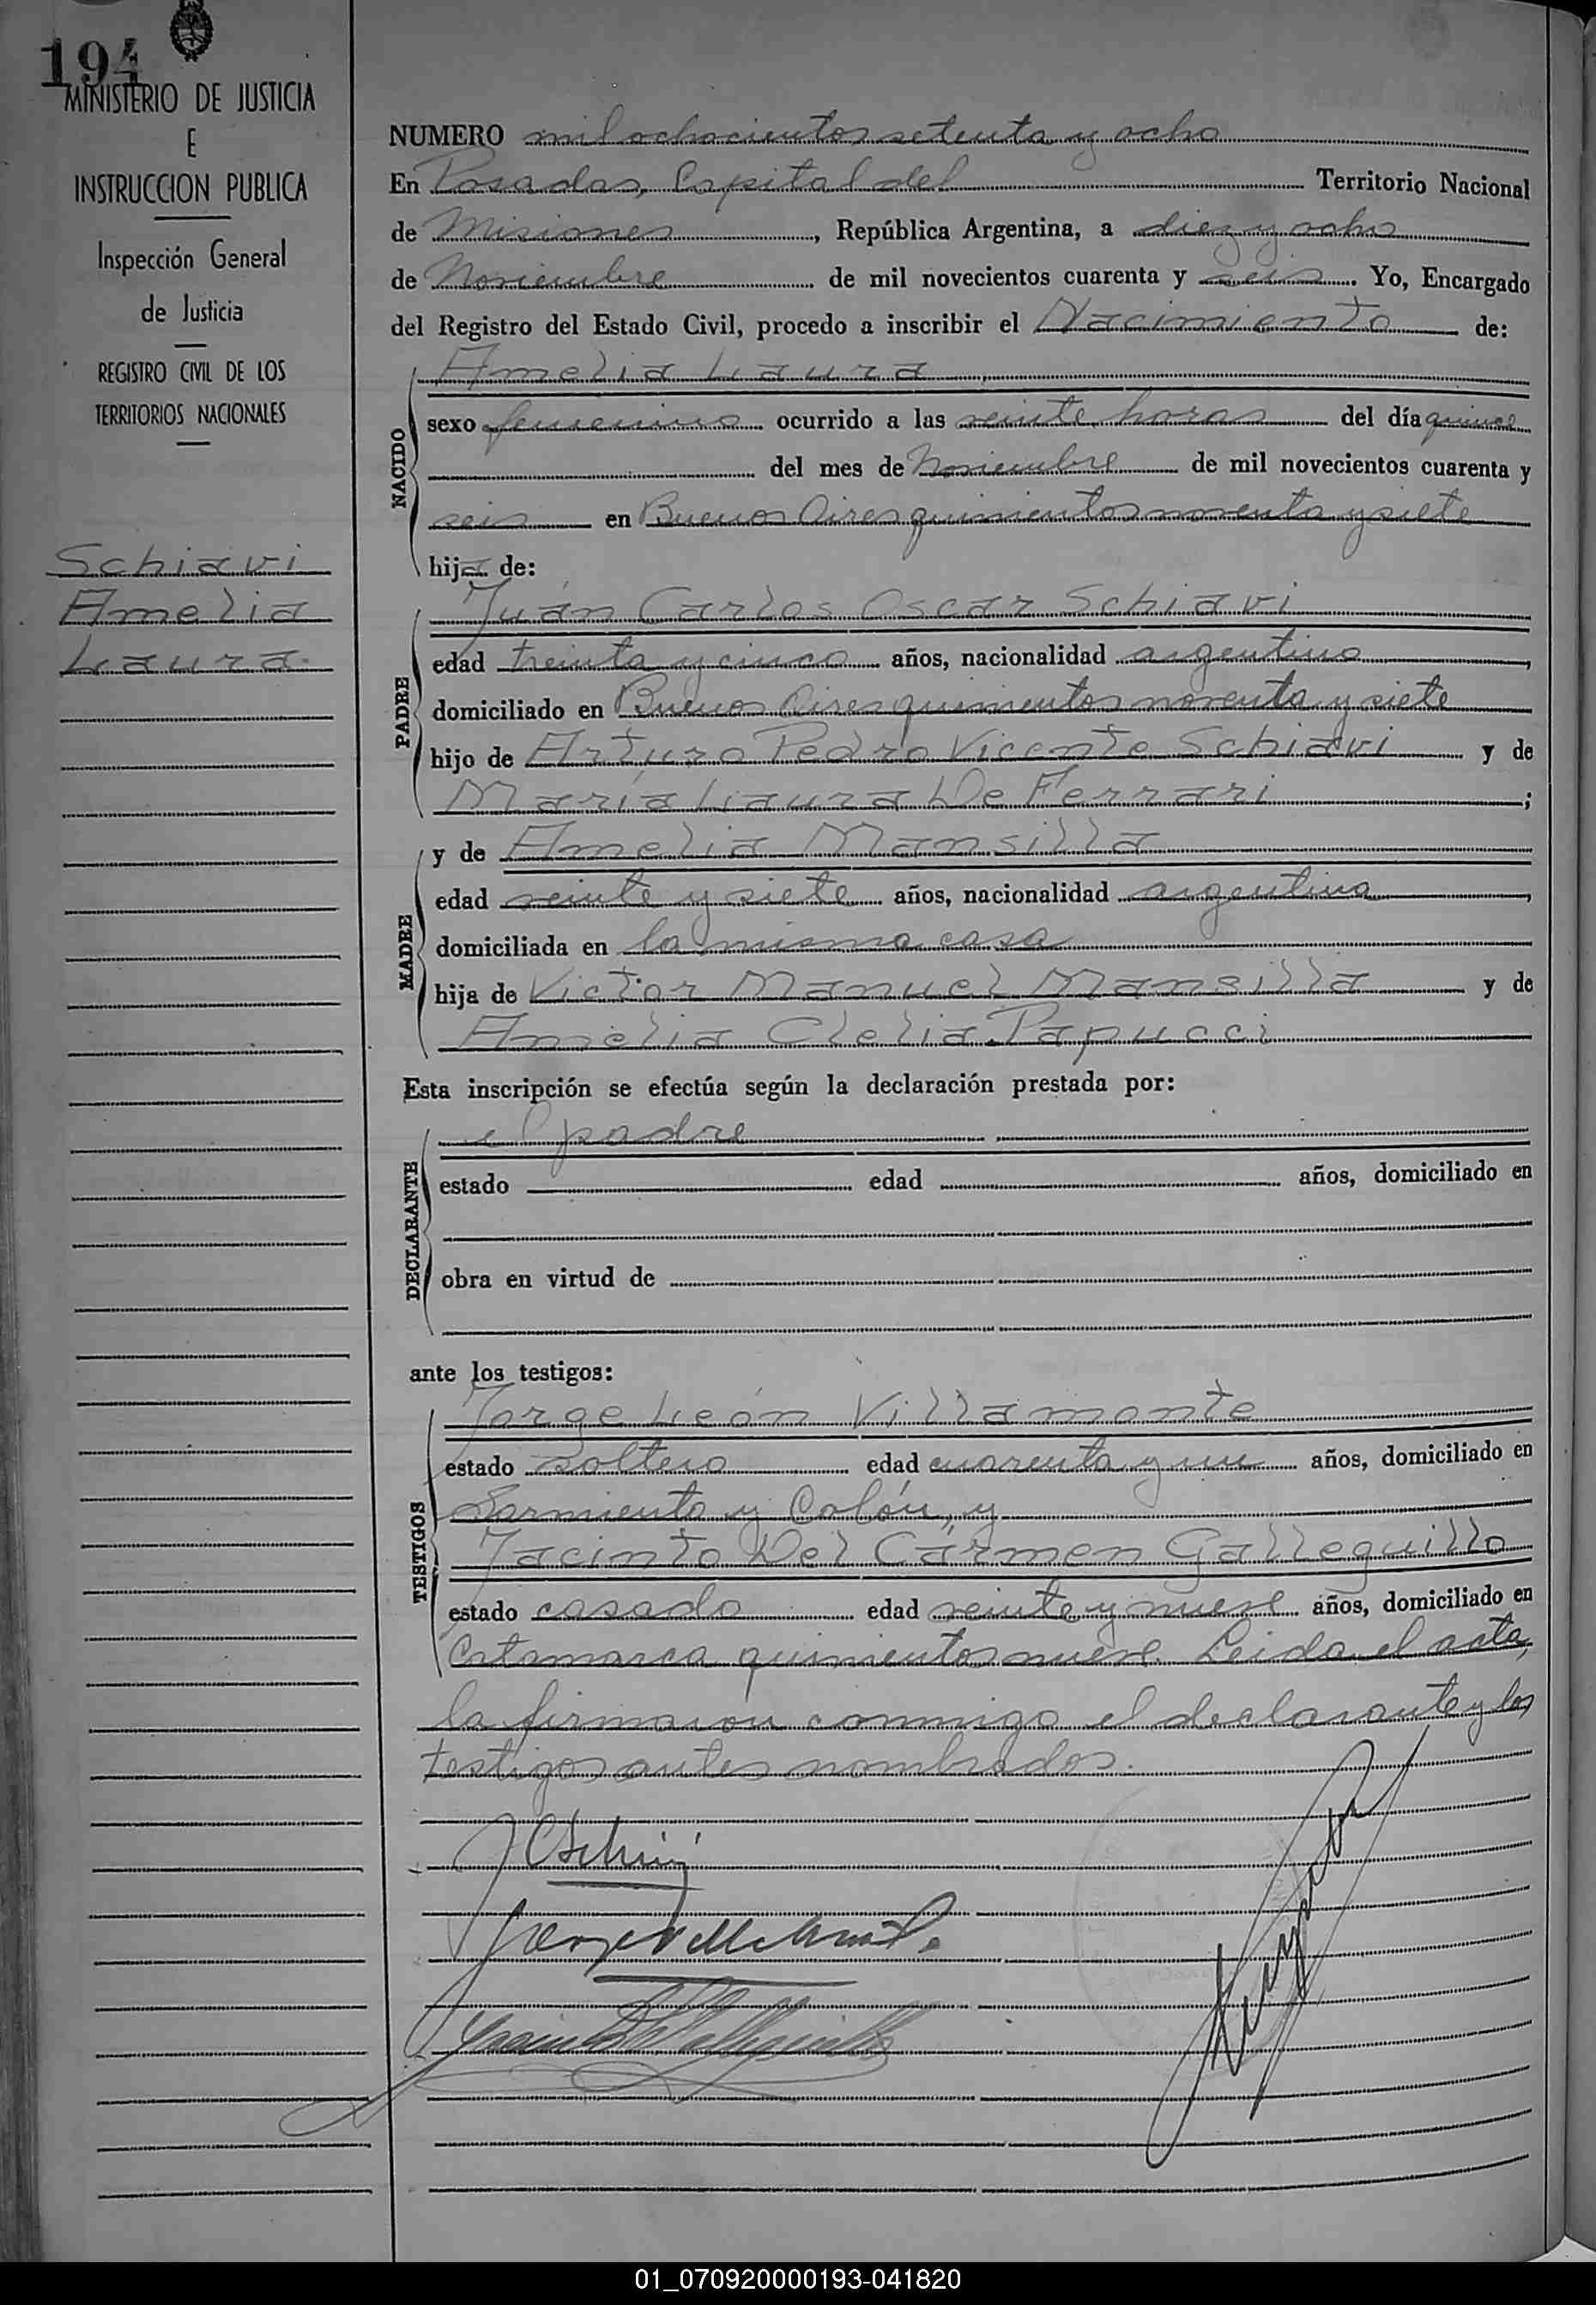 194
MINISTERIO DE JUSTICIA
E
INSTRUCCION PUBLICA
Inspección General
de Justicia
REGISTRO CIVIL DE LOS
TERRITORIOS NACIONALES
Schiavi
Amelia
Laura.
NUMERO mil ochocientos setenta y ocho
En Posadas, Capital del Territorio Nacional
de Misiones, República Argentina, a diez y ocho
de Noviembre de mil novecientos cuarenta y seis. Yo, Encargado
del Registro del Estado Civil, procedo a inscribir el Nacimiento de:
NACIDO
Amelia Laura
sexo femenino ocurrido a las veinte horas del día quince
del mes de Noviembre de mil novecientos cuarenta y
seis en Buenos Aires quinientos noventa y siete
hija de:
PADRE
Juán Carlos Oscar Schiavi
edad treinta y cinco años, nacionalidad argentino,
domiciliado en Buenos Aires quinientos noventa y siete
hijo de Arturo Pedro Vicente Schiavi y de
María Laura De Ferrari;
MADRE
y de Amelia Mansilla
edad veinte y siete años, nacionalidad argentina,
domiciliada en la misma casa
hija de Victor Manuel Mansilla y de
Amelia Clelia Papucci
Esta inscripción se efectúa según la declaración prestada por:
DECLARANTE
el padre
estado edad años, domiciliado en
obra en virtud de
ante los testigos:
TESTIGOS
Jorge León Villamonte
estado soltero edad cuarenta y un años, domiciliado en
Sarmiento y Colón, y
Jacinto Del Cármen Galleguillo
estado casado edad veinte y nueve años, domiciliado en
Catamarca quinientos nueve. Leida el acta,
la firmaron conmigo el declarante y los
testigos antes nombrados.
01_070920000193-041820